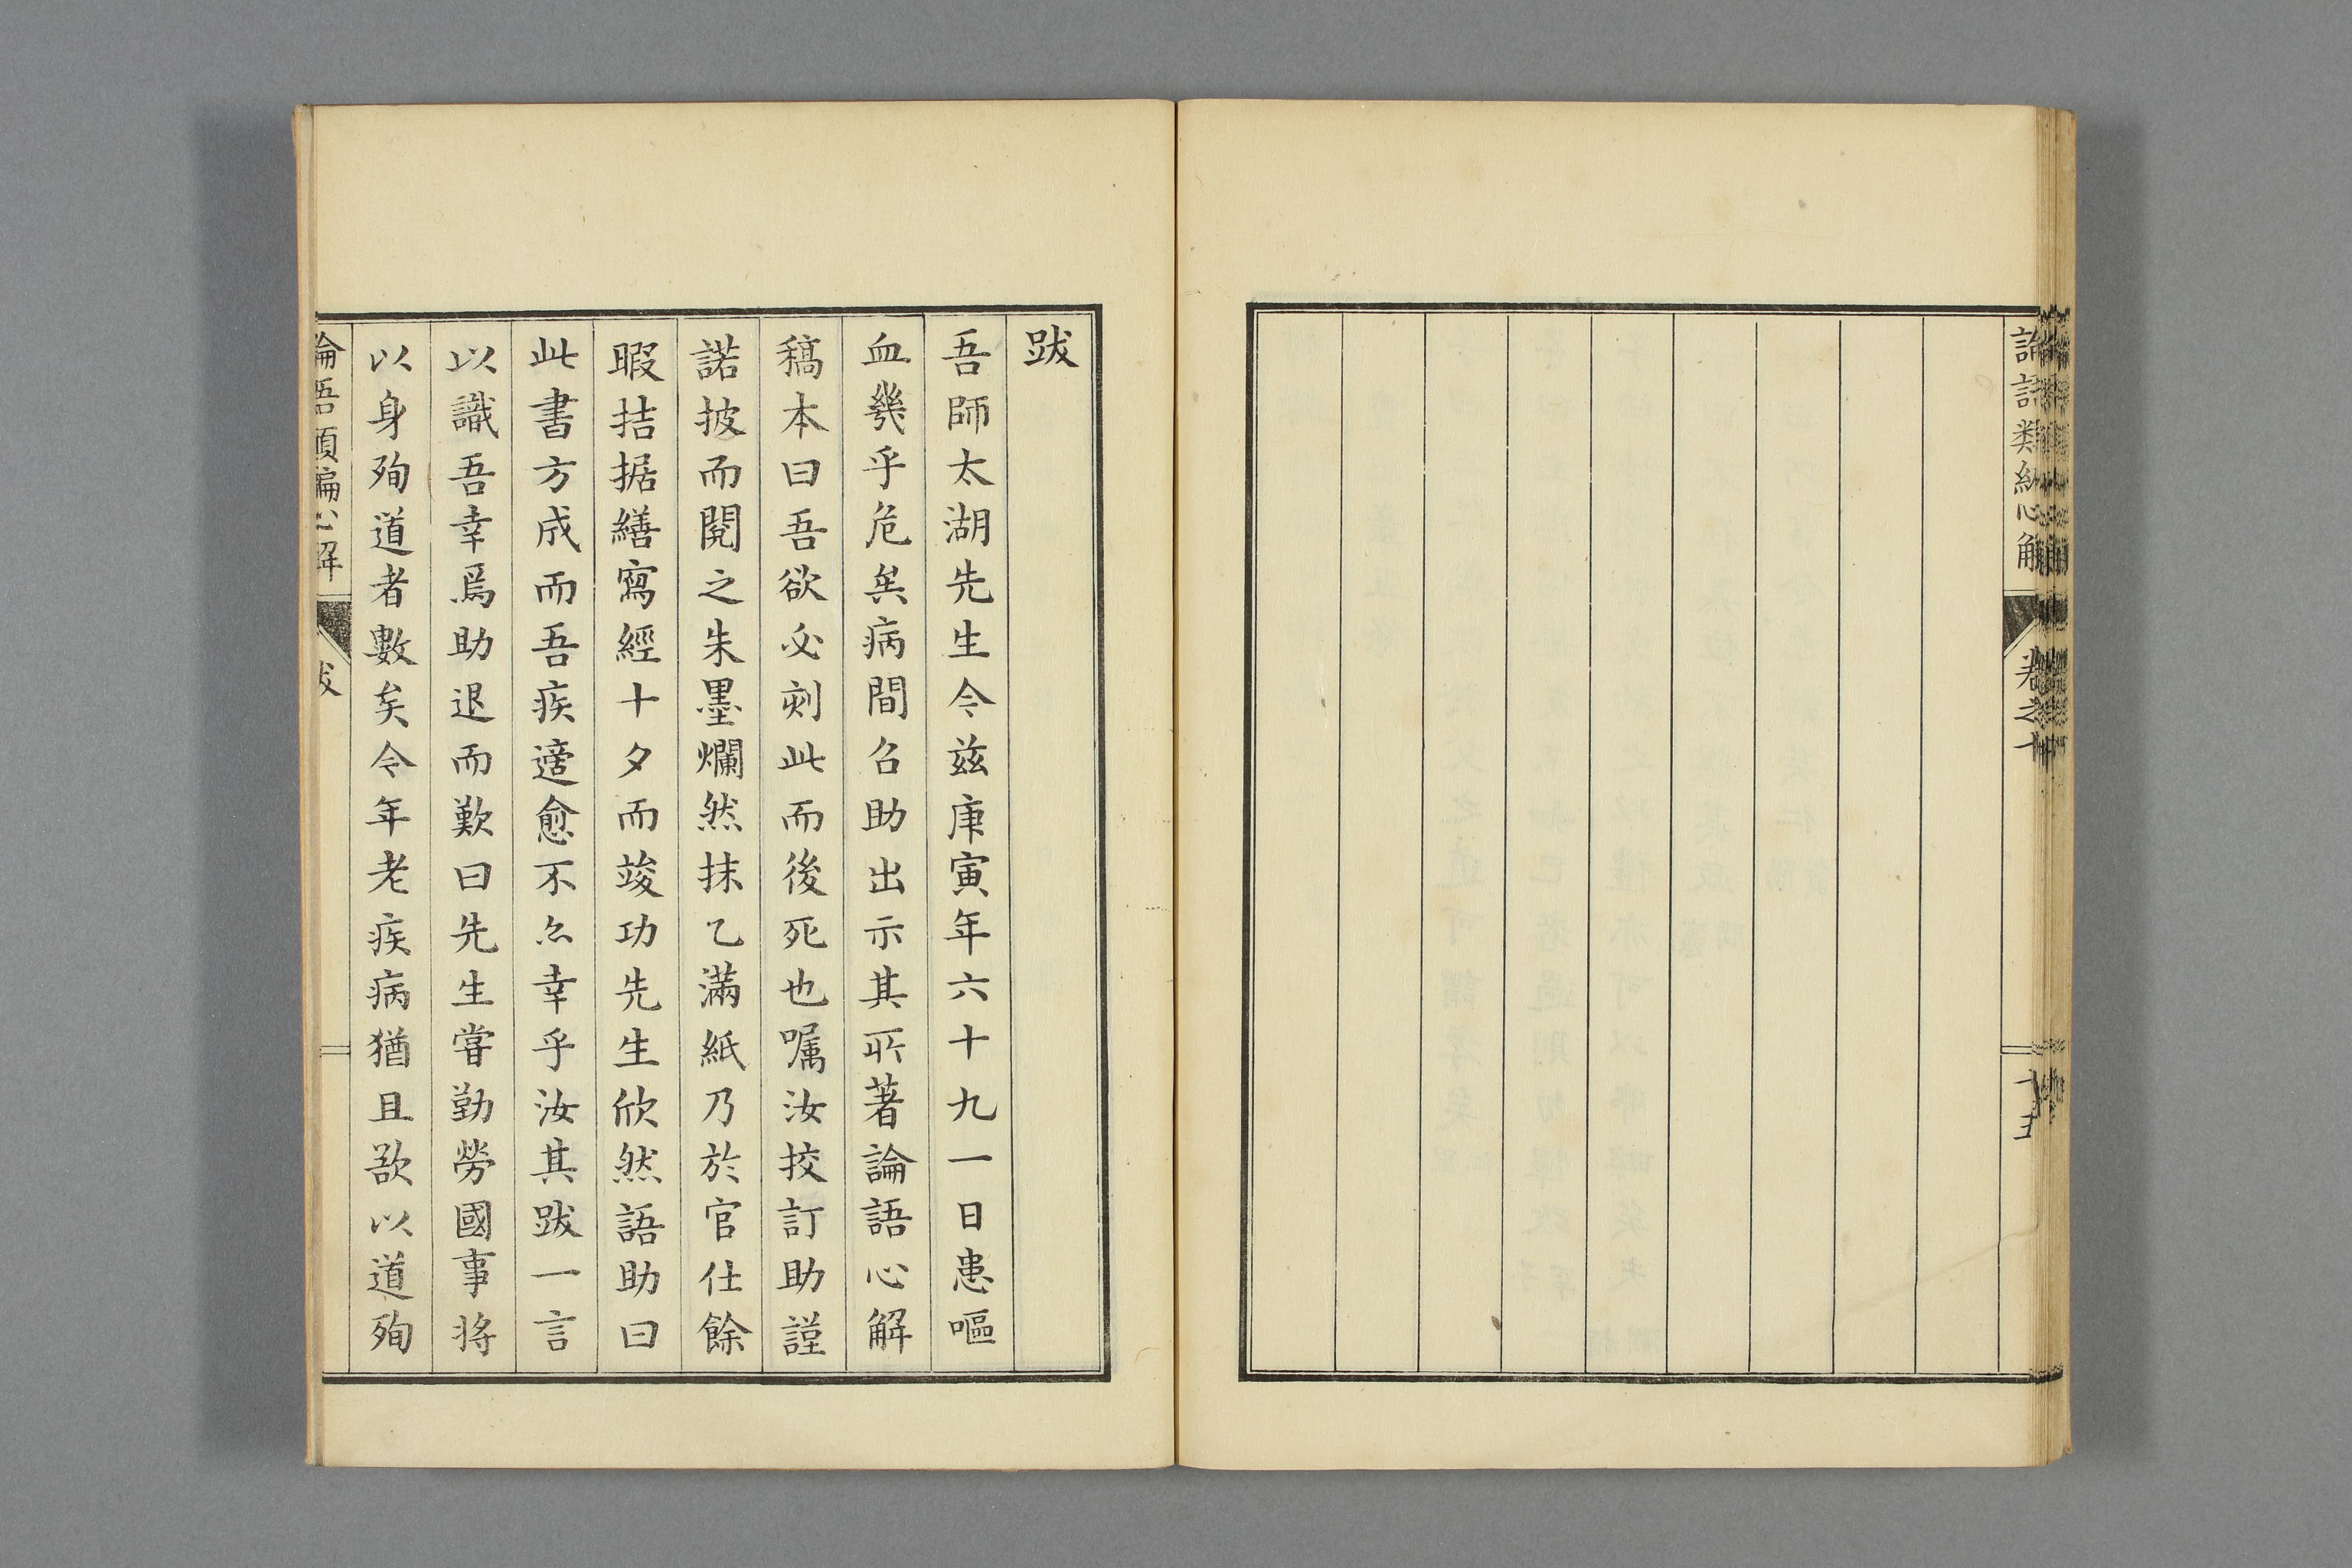 論語類編心解
卷之十
十五
跋
吾師太湖先生令茲庚寅年六十九一日患嘔
血幾乎危矣病間召助出示其所著論語心解
稿本曰吾欲必刻此而後死也囑汝挍訂助謹
諾披而閱之朱墨爛然抹乙滿紙乃於官仕餘
暇拮据繕寫經十夕而竣功先生欣然語助曰
此書方成而吾疾適愈不亦幸乎汝其跋一言
以識吾幸焉助退而歎曰先生嘗勤勞國事將
以身殉道者數矣令年老疾病猶且欲以道殉
論語類編心解
跋